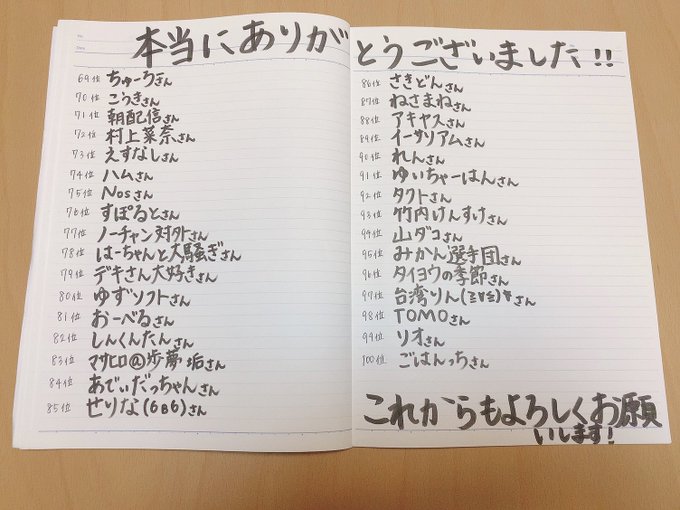 本当にありがとうございました!!
69位 ちゅーろさん
70位 こうきさん
71位 朝配信さん
72位 村上菜奈さん
73位 えすなしさん
74位 ハムさん
75位 Nosさん
76位 すぽるとさん
77位 ノーチャン対外さん
78位 はーちゃんと大騒ぎさん
79位 デキさん大好きさん
80位 ゆずソフトさん
81位 おーべるさん
82位 しんくんたんさん
83位 マサヒロ@歩夢垢さん
84位 あでぃだっちゃんさん
85位 せりな(6B6)さん
86位 さきどんさん
87位 ねさまねさん
88位 アキヤスさん
89位 イーサソアムさん
90位 れんさん
91位 ゆぃちゃーはんさん
92位 タクトさん
93位 竹内けんすけさん
94位 山ダコさん
95位 みかん選手団さん
96位 タイヨウの季節さん
97位 台湾りんさん
98位 TOMOさん
99位 リオさん
100位 ごはんっちさん
これからもよろしくお願
いします!